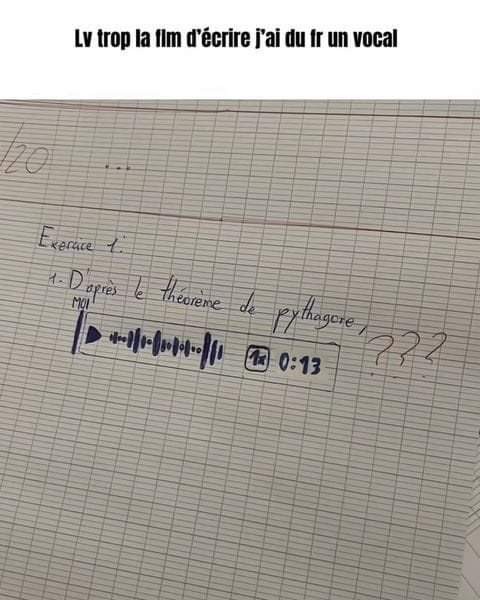 Lv trop la flm d'écrire j'ai du fr un vocal
/20 ...
Exercice 1:
1. D'après le théorème de pythagore, ???
MOI
1x 0:13